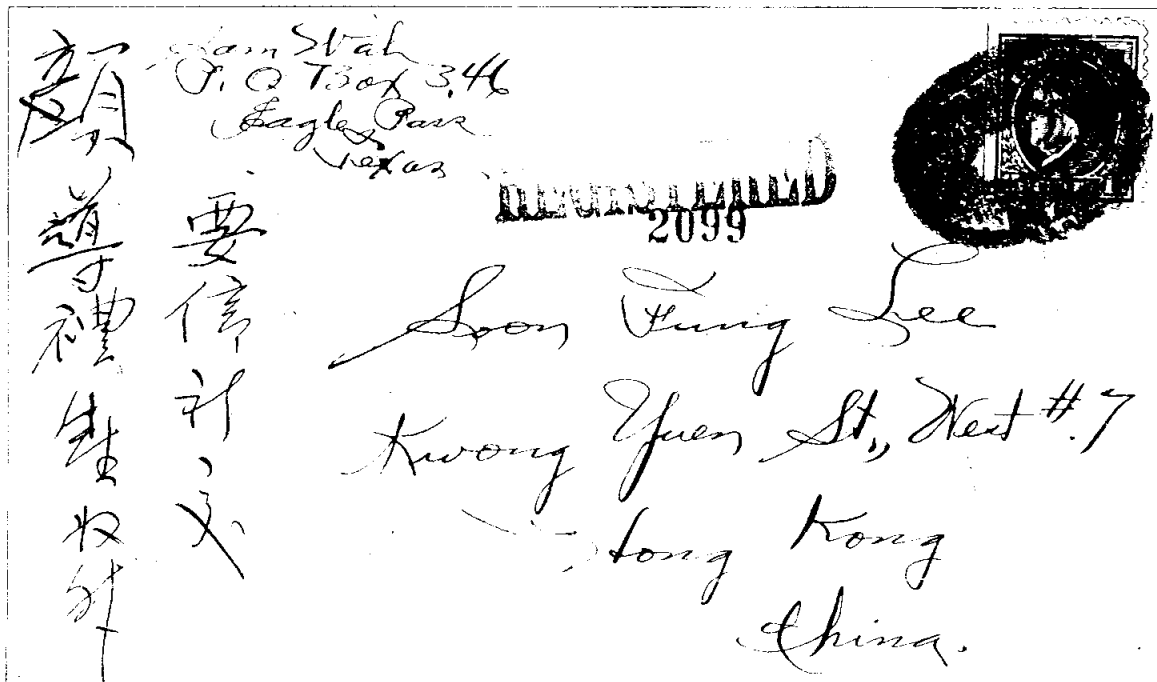 Sam Wah
P. O Box 346
Eagle Pass
Texas
REGISTERED
2099
Soon Fung Lee
Kwong Yuen St., West #.7
Hong Kong
China.
要信祈交
顏導禮先生收升